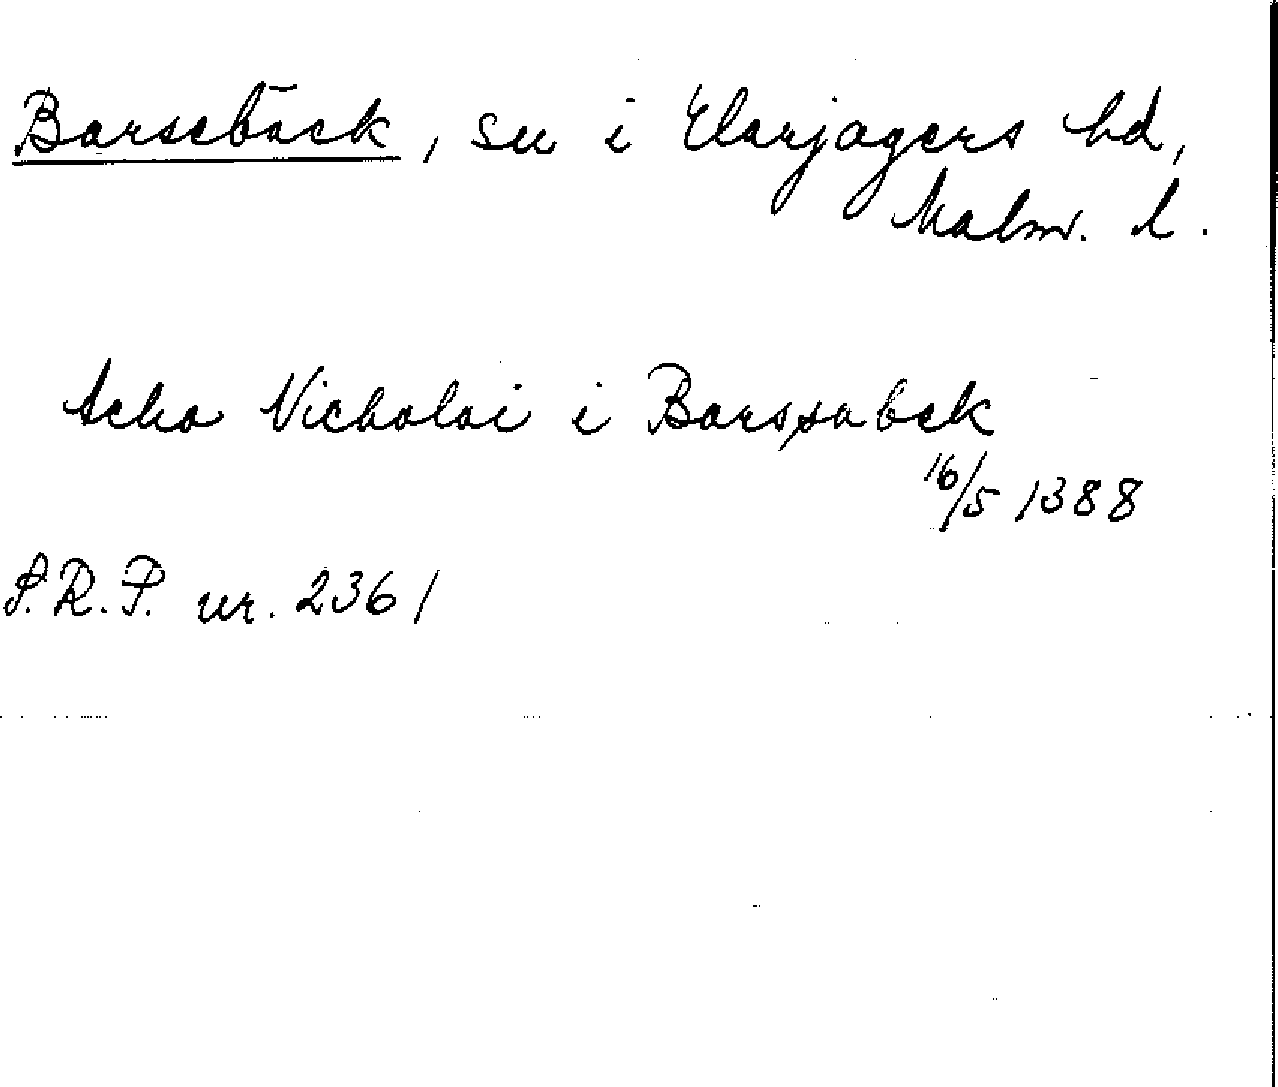 Barsebäck, sn i Harjagers hd,
Malm. l.
Acho Nicholai i Barsxabek
16/5 1388
S.R.P. nr. 2361